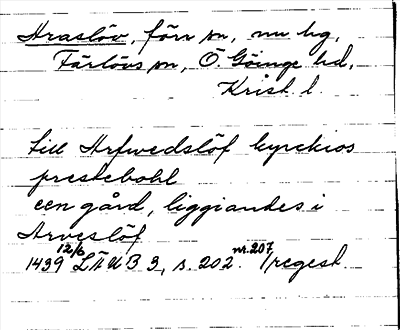 Araslöv, förr sn, nu bg,
Färlövs sn, Ö. Göinge hd,
Krist. l.
till Arfwedslöf kyrckios
prestebohl
een gård, liggiandes i
Arveslöf
1439 12/6 LÄUB 3, s. 202 nr. 207 /regest